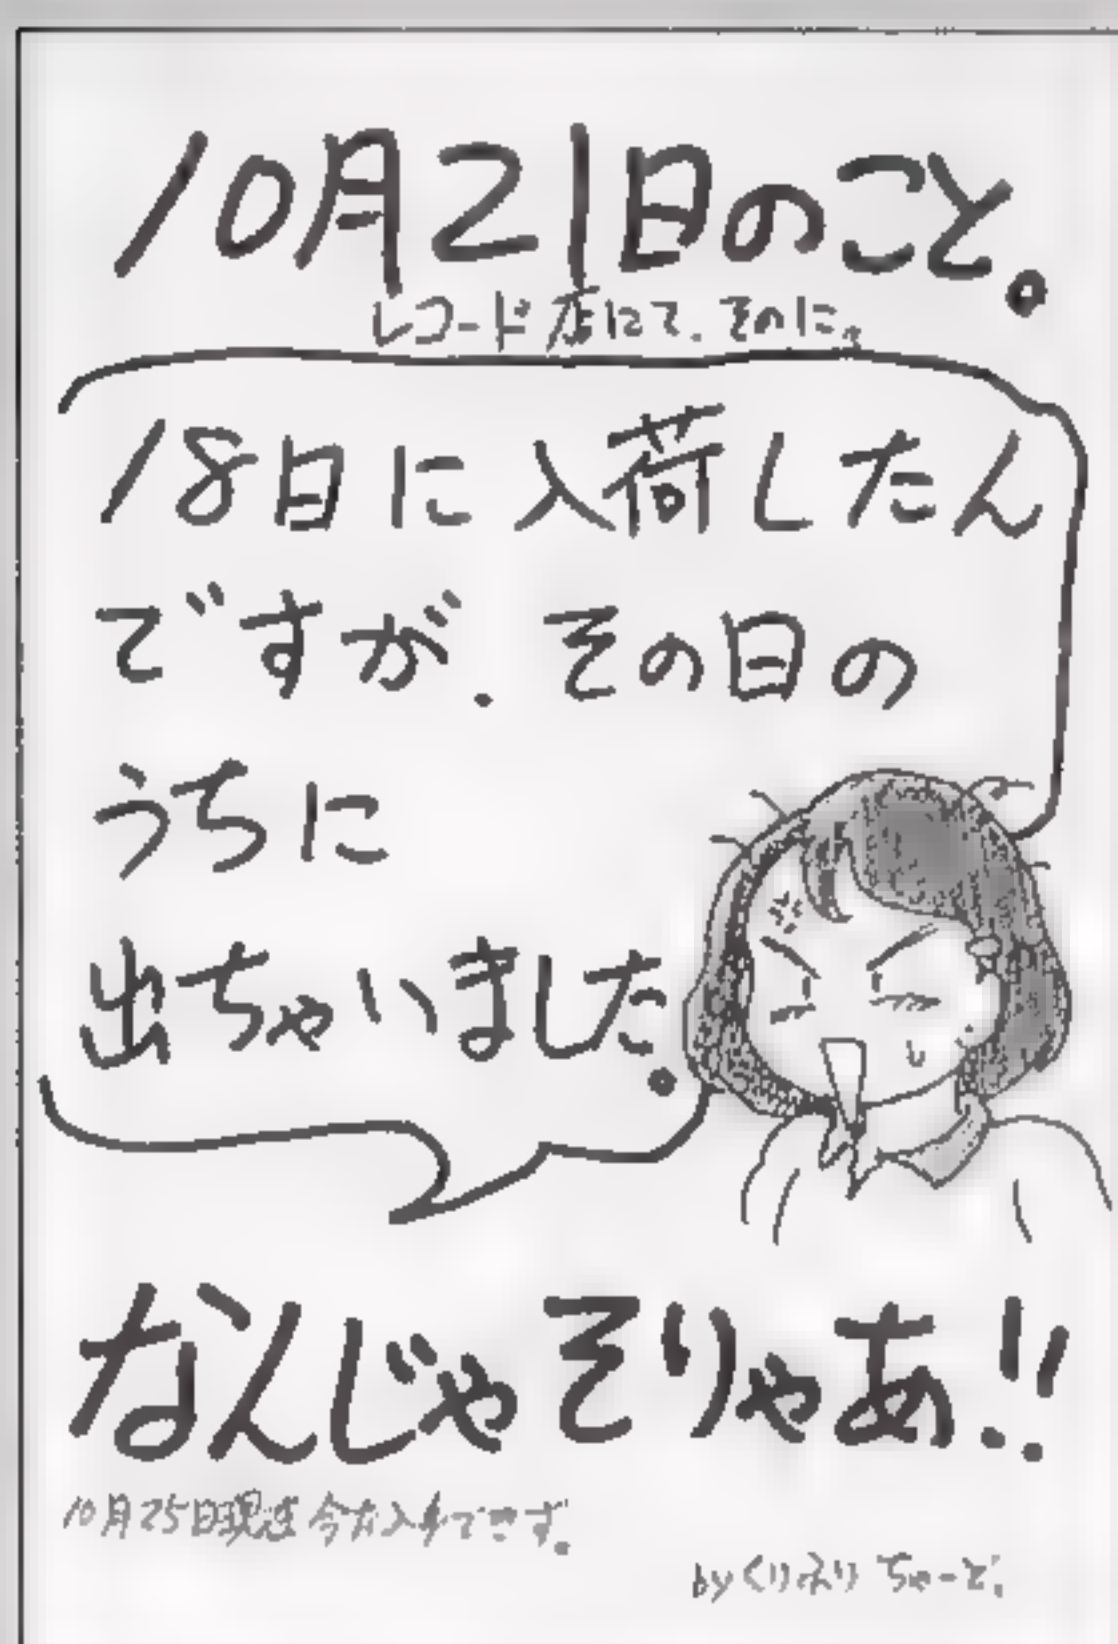 10月21日のこと。
レコード店にて。そのに。
18日に入荷したん
ですが、その日の
うちに
出ちゃいました。
なんじゃそりゃあ!!
10月25日現在今だ入手できず。
by くりふり ちゃーど。